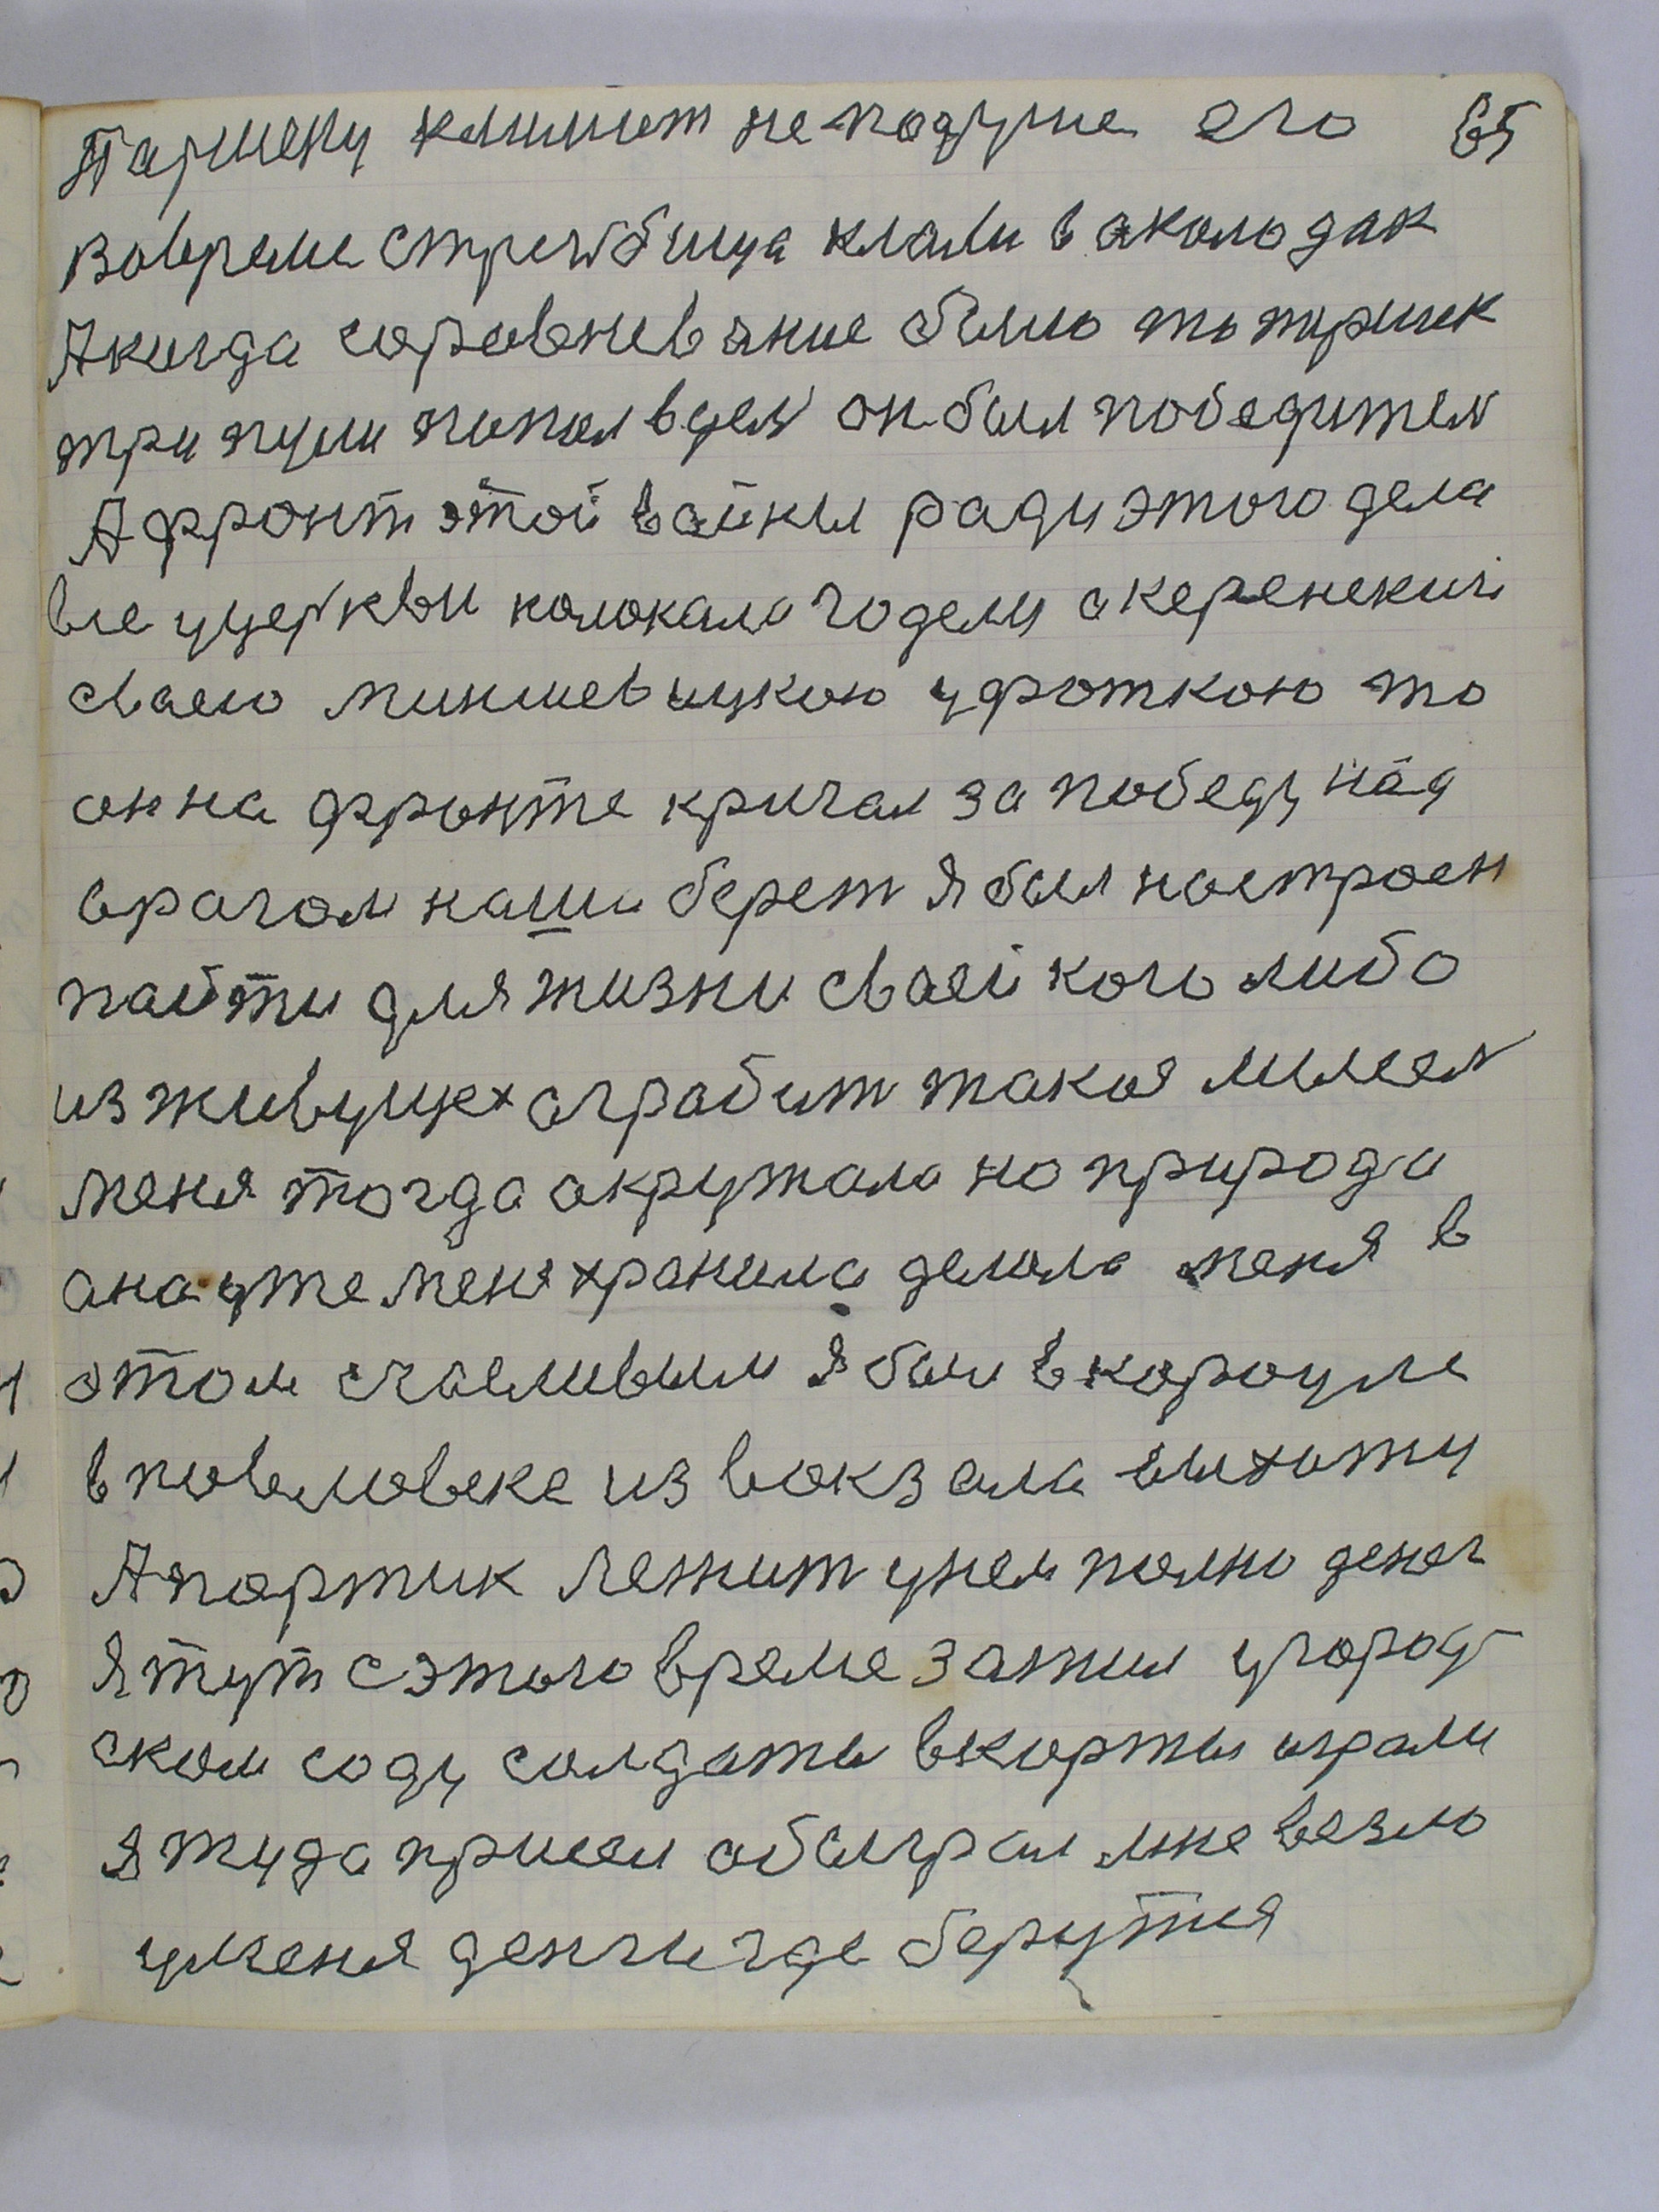 Паршену климат не подуше его 65
вовреме стрельбища клали в околодак
Акагда соревневание было то паршек
три пули попал вцель он был победител
А фронт этой вайны ради этого дела
все уцерквы колокала годели а керенский
сваею миншевицкою уфоткою то
он на фронте кричал за победу над
врагом наши берет я был настроен
пайти для жизни сваей кого либо
из живущих аграбит такоя мысел
меня тогда акружала но природа
ана уже меня хранила делала меня в
этом счасливым я был вкарауле
в павловске из вокзала выхожу
Апартик лежит унем полно денег
я тут сэтого время зажил угород
ском саду солдаты вкарты играли
я туда пришел обыграл мне везло
уменя денги где берутия